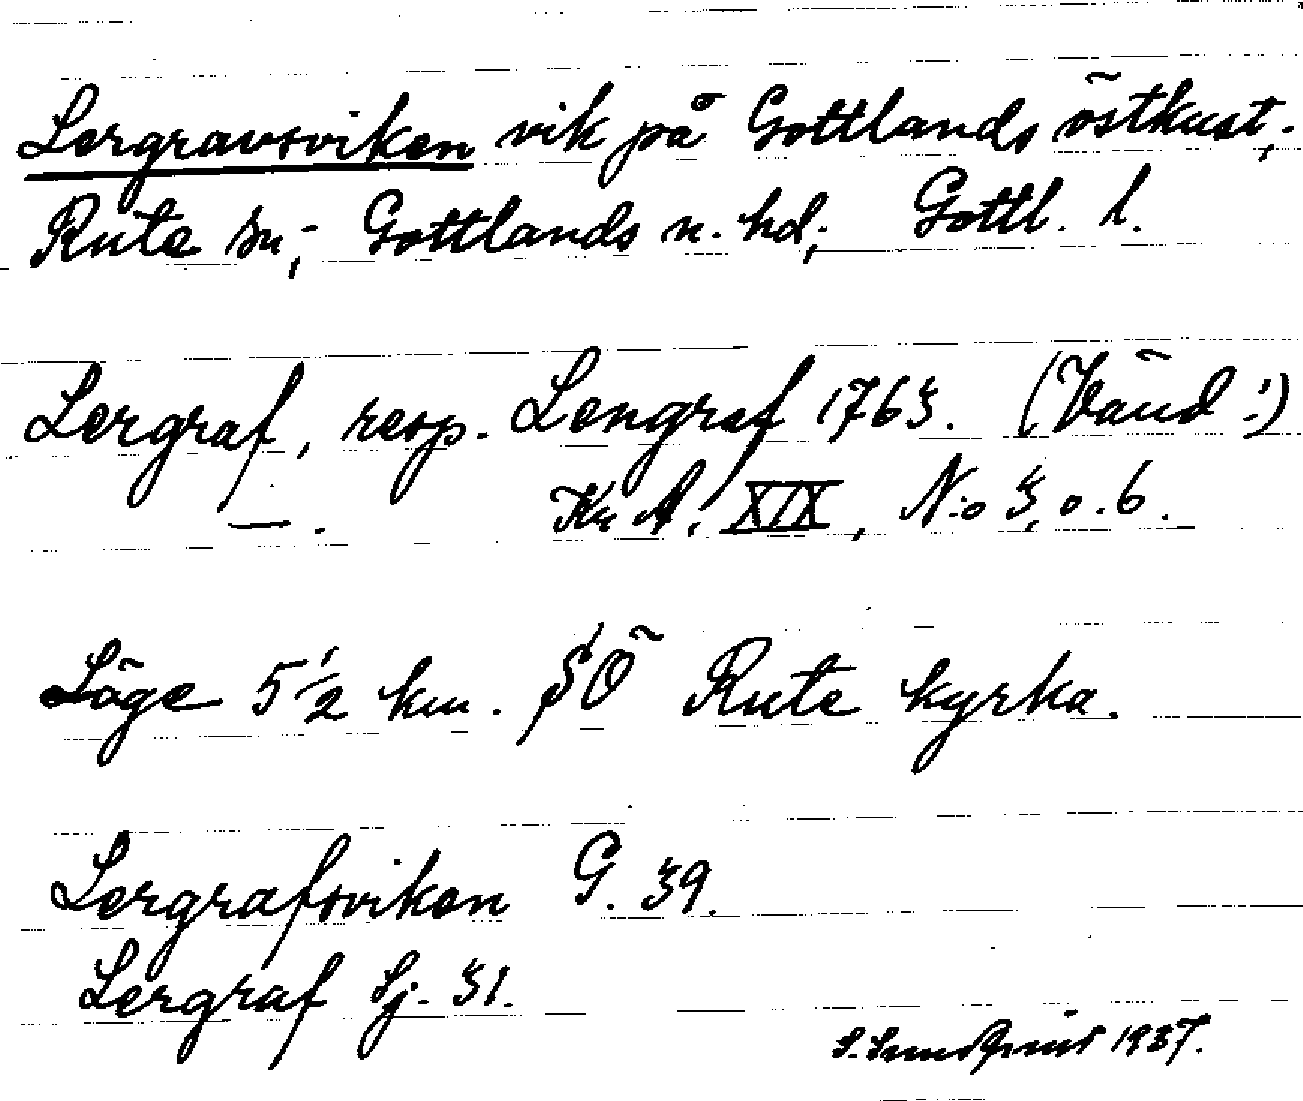 Lergravsviken vik på Gottlands östkust,
Rute sn, Gottlands n. hd, Gottl. l.
Lergraf, resp. Lengraf 1763. (Vänd!)
— . Kr A. XIX, N:o 3, o. 6.
Läge 5 1/2 km. SÖ Rute kyrka.
Lergrafsviken G. 39.
Lergraf Sj. 31.
S. Sundquist 1937.